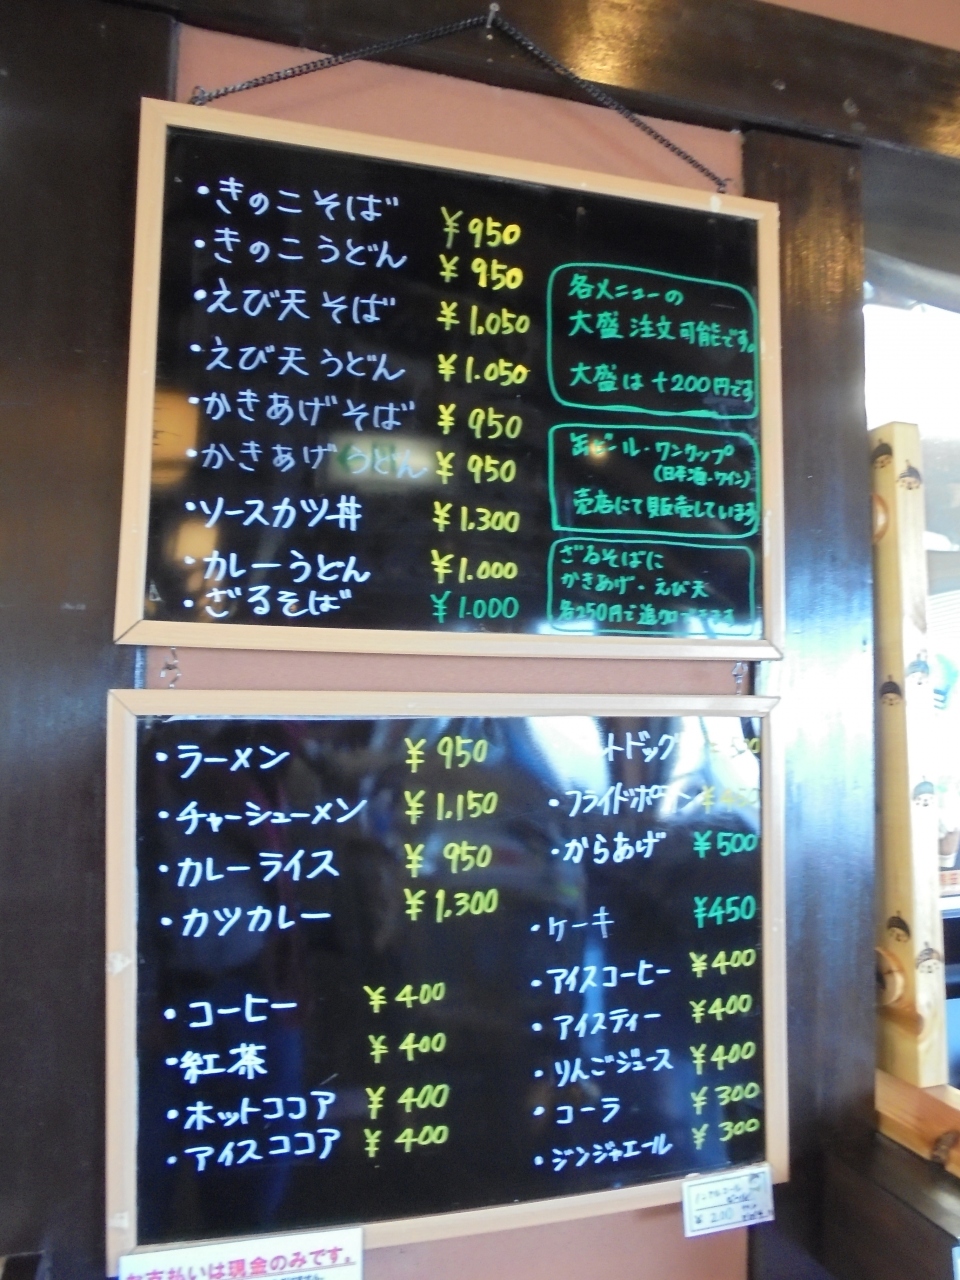 ・きのこそば ¥950
・きのこうどん ¥950
・えび天そば ¥1,050
・えび天うどん ¥1,050
・かきあげそば ¥950
・かきあげうどん ¥950
・ソースカツ丼 ¥1,300
・カレーうどん ¥1,000
・ざるそば ¥1,000
各メニューの
大盛注文可能です。
大盛は+200円です
缶ビール・ワンカップ
(日本酒・ワイン)
売店にて販売しています
ざるそばに
かきあげ・えび天
各250円で追加できます
・ラーメン ¥950
・チャーシューメン ¥1,150
・カレーライス ¥950
・カツカレー ¥1,300
・コーヒー ¥400
・紅茶 ¥400
・ホットココア ¥400
・アイスココア ¥400
トドッグ
・フライドポテト
・からあげ ¥500
・ケーキ ¥450
・アイスコーヒー ¥400
・アイスティー ¥400
・りんごジュース ¥400
・コーラ ¥300
・ジンジャエール ¥300
ノンアルコール
¥200
お支払いは現金のみです。